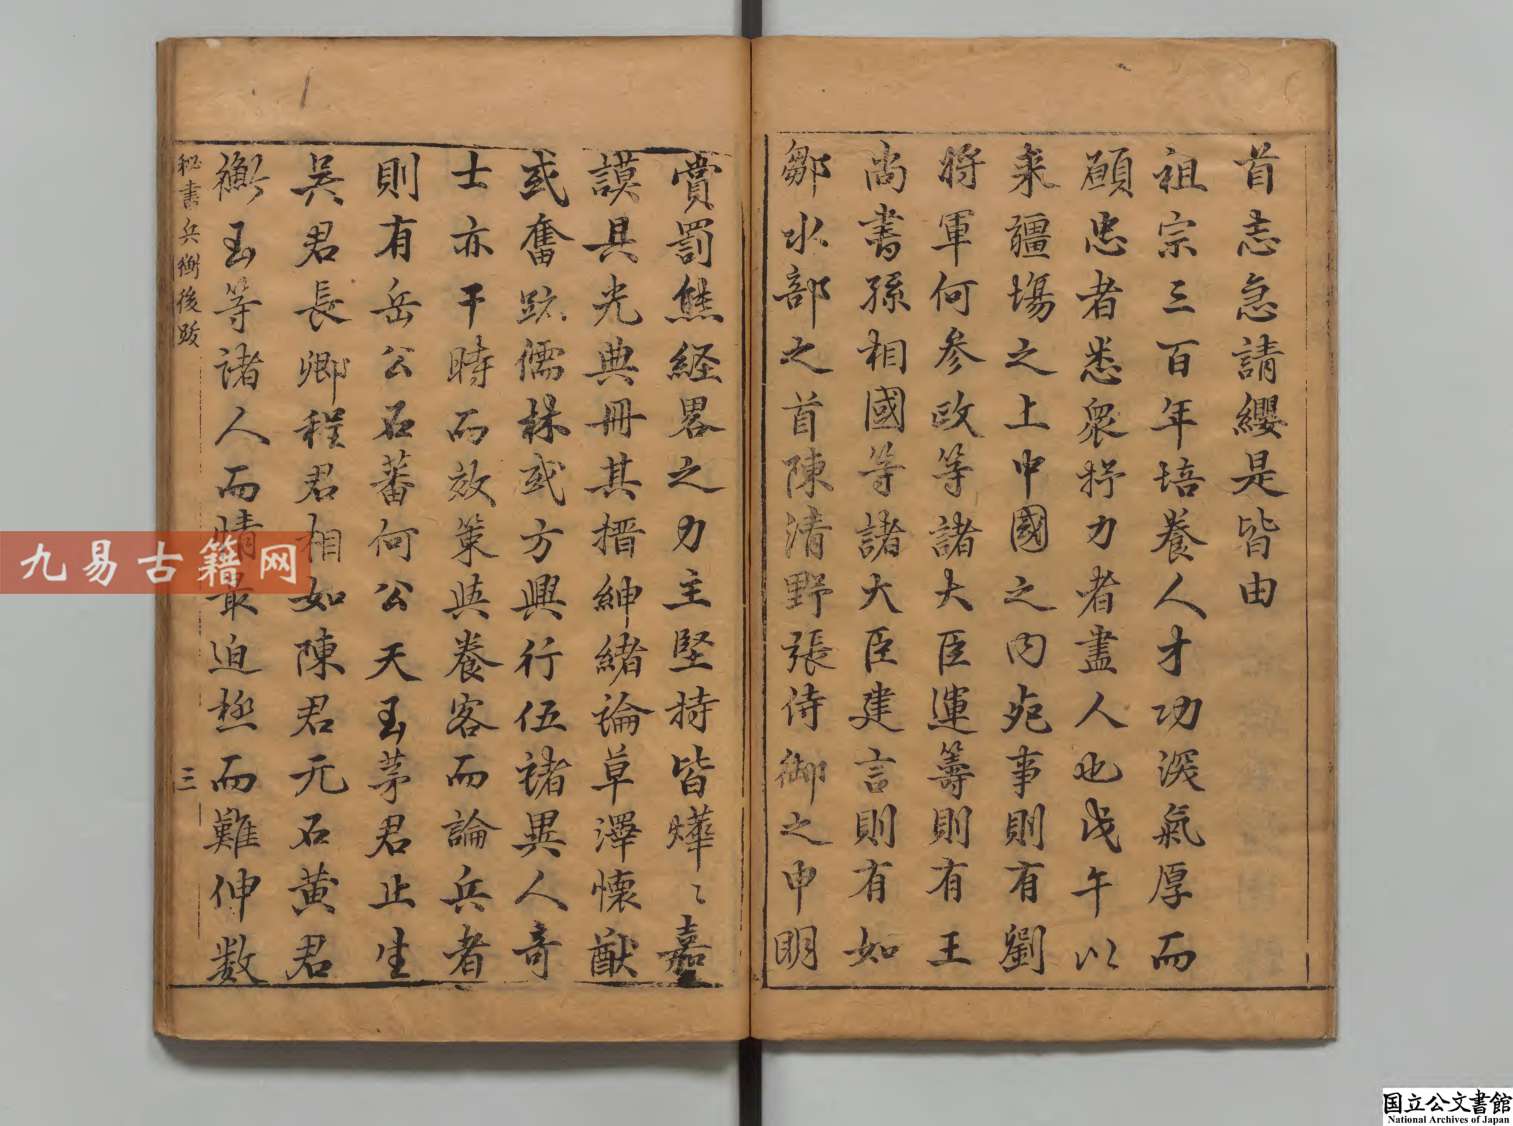 首志急請纓是皆由
祖宗三百年培養人才功深氣厚而
願忠者悉衆抒力者盡人也戊午以
來疆場之上中國之內兵事則有劉
將軍何參政等諸大臣運籌則有王
尚書孫相國等諸大臣建言則有如
鄒水部之首陳清野張侍御之申明
賞罰熊経畧之力主堅持皆燁〻嘉
謨具光典冊其搢紳緒論草澤懷猷
或奮跡儒林或方興行伍諸異人奇
士亦干時而效策與養客而論兵者
則有岳公石蕃何公天玉茅君止生
吳君長卿程君相如陳君元石黄君
衡玉等諸人而情最迫極而難伸数
秘書兵衡後跋
三
九易古籍网
国立公文書館
National Archives of Japan